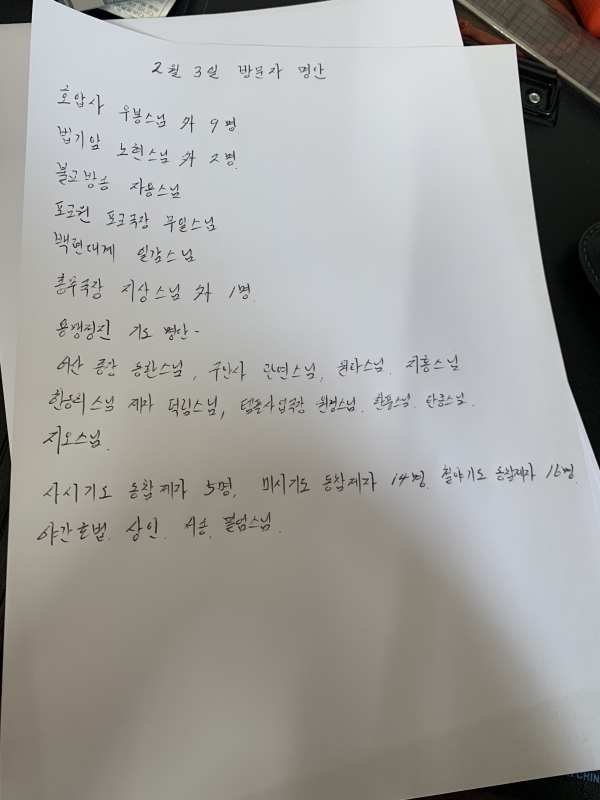 2월 3일 방문자 명단
호압사 우봉스님 外 9명
법기암 노현스님 外 2명
불교방송 자용스님
포교원 포교국장 무일스님
백련대계 일감스님
총무국장 지상스님 外 1명.
용맹정진 기도 명단-
어산 종강 동환스님, 구안사 관연스님, 원타스님. 지홍스님
스님 제자 덕림스님, 템플사업국장 원경스님. 한풍스님. 단중스님.
지오스님.
사시기도 동참제자 5명, 미시기도 동참제자 14명. 철야기도 동참제자 16명.
야간호법. 상인. 서송. 스님.